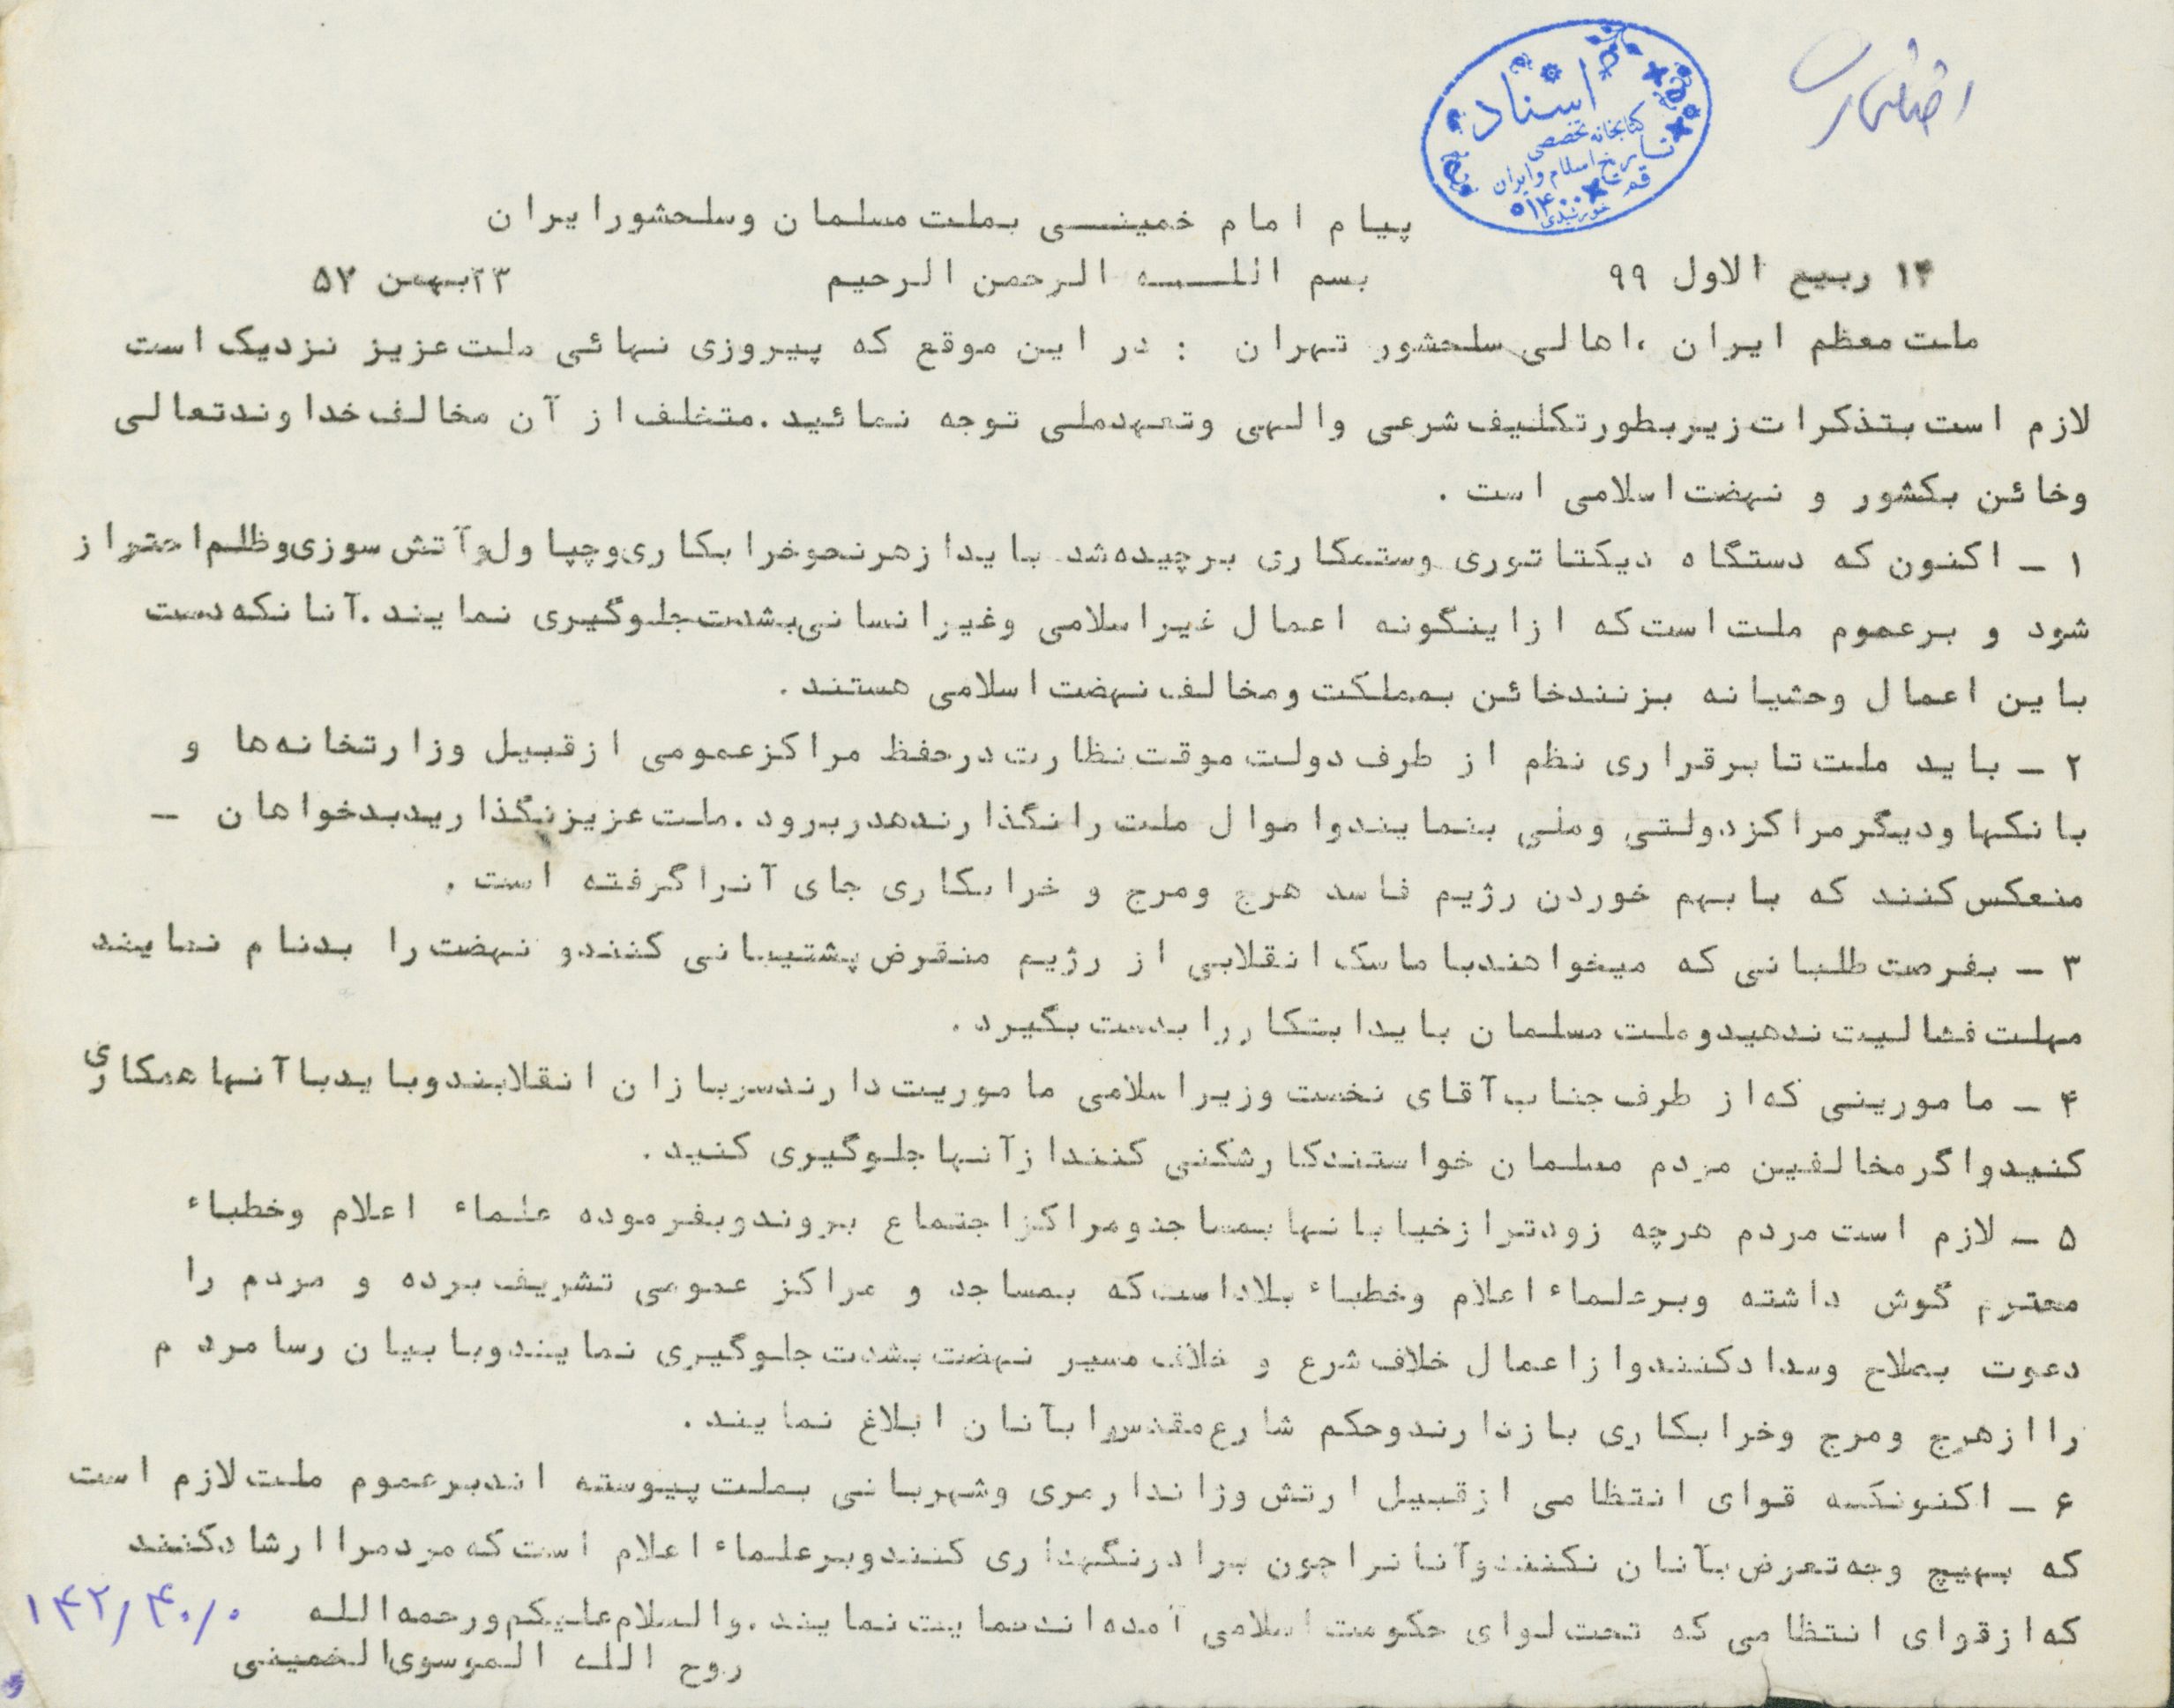 اسناد
کتابخانه تخصصی
تاریخ اسلام و ایران
قم
پیام امام خمینی بملت مسلمان وسلحشورایران
۱۴ ربیع الاول ۹۹ بسم الله الرحمن الرحیم ۲۳بهمن ۵۷
ملت معظم ایران ،اهالی سلحشور تهران : در این موقع که پیروزی نهائی ملت عزیز نزدیک است
لازم است بتذکرات زیربطورتکلیف شرعی والهی وتعهدملی توجه نمائید.متخلف از آن مخالف خداوندتعالی
وخائن بکشور و نهضت اسلامی است .
۱ ـ اکنون که دستگاه دیکتاتوری وستمکاری برچیده شد بایدازهرنحوخرابکاری وچپاول وآتش سوزی وظلم احتراز
شود و برعموم ملت است که ازاینگونه اعمال غیراسلامی وغیرانسانی بشدت جلوگیری نمایند.آنانکه دست
باین اعمال وحشیانه بزنندخائن بمملکت ومخالف نهضت اسلامی هستند .
۲ ـ باید ملت تابرقراری نظم از طرف دولت موقت نظارت درحفظ مراکزعمومی ازقبیل وزارتخانه ها و
بانکهاودیگرمراکزدولتی وملی بنمایندواموال ملت رانگذارندهدربرود.ملت عزیزنگذاریدبدخواهان ـ
منعکس کنند که بابهم خوردن رژیم فاسد هرج ومرج و خرابکاری جای آنراگرفته است .
۳ ـ بفرصت طلبانی که میخواهندباماسک انقلابی از رژیم منقرض پشتیبانی کنندو نهضت را بدنام نمایند
مهلت فعالیت ندهیدوملت مسلمان بایدابتکاررابدست بگیرد .
۴ ـ مامورینی که از طرف جناب آقای نخست وزیراسلامی ماموریت دارندسربازان انقلابندوبایدباآنهاهمکاری
کنیدواگرمخالفین مردم مسلمان خواستندکارشکنی کنندازآنهاجلوگیری کنید .
۵ ـ لازم است مردم هرچه زودترازخیابانهابمساجدومراکزاجتماع بروندوبفرموده علماء اعلام وخطباء
محترم گوش داشته وبرعلماء اعلام وخطباء بلاداست که بمساجد و مراکز عمومی تشریف برده و مردم را
دعوت بصلاح وسدادکنندوازاعمال خلاف شرع و خلاف مسیر نهضت بشدت جلوگیری نمایندوبابیان رسا مردم
راازهرج ومرج وخرابکاری بازدارندوحکم شارع مقدس رابآنان ابلاغ نمایند .
۶ ـ اکنونکه قوای انتظامی ازقبیل ارتش وژاندارمری وشهربانی بملت پیوسته اندبرعموم ملت لازم است
که بهیچ وجه تعرض بآنان نکنندوآنانراچون برادرنگهداری کنندوبرعلماء اعلام است که مردمراارشادکنند
که ازقوای انتظامی که تحت لوای حکومت اسلامی آمده اندحمایت نمایند.والسلام علیکم ورحمه الله
روح الله الموسوی الخمینی
۱۴۲/۴۰/۰